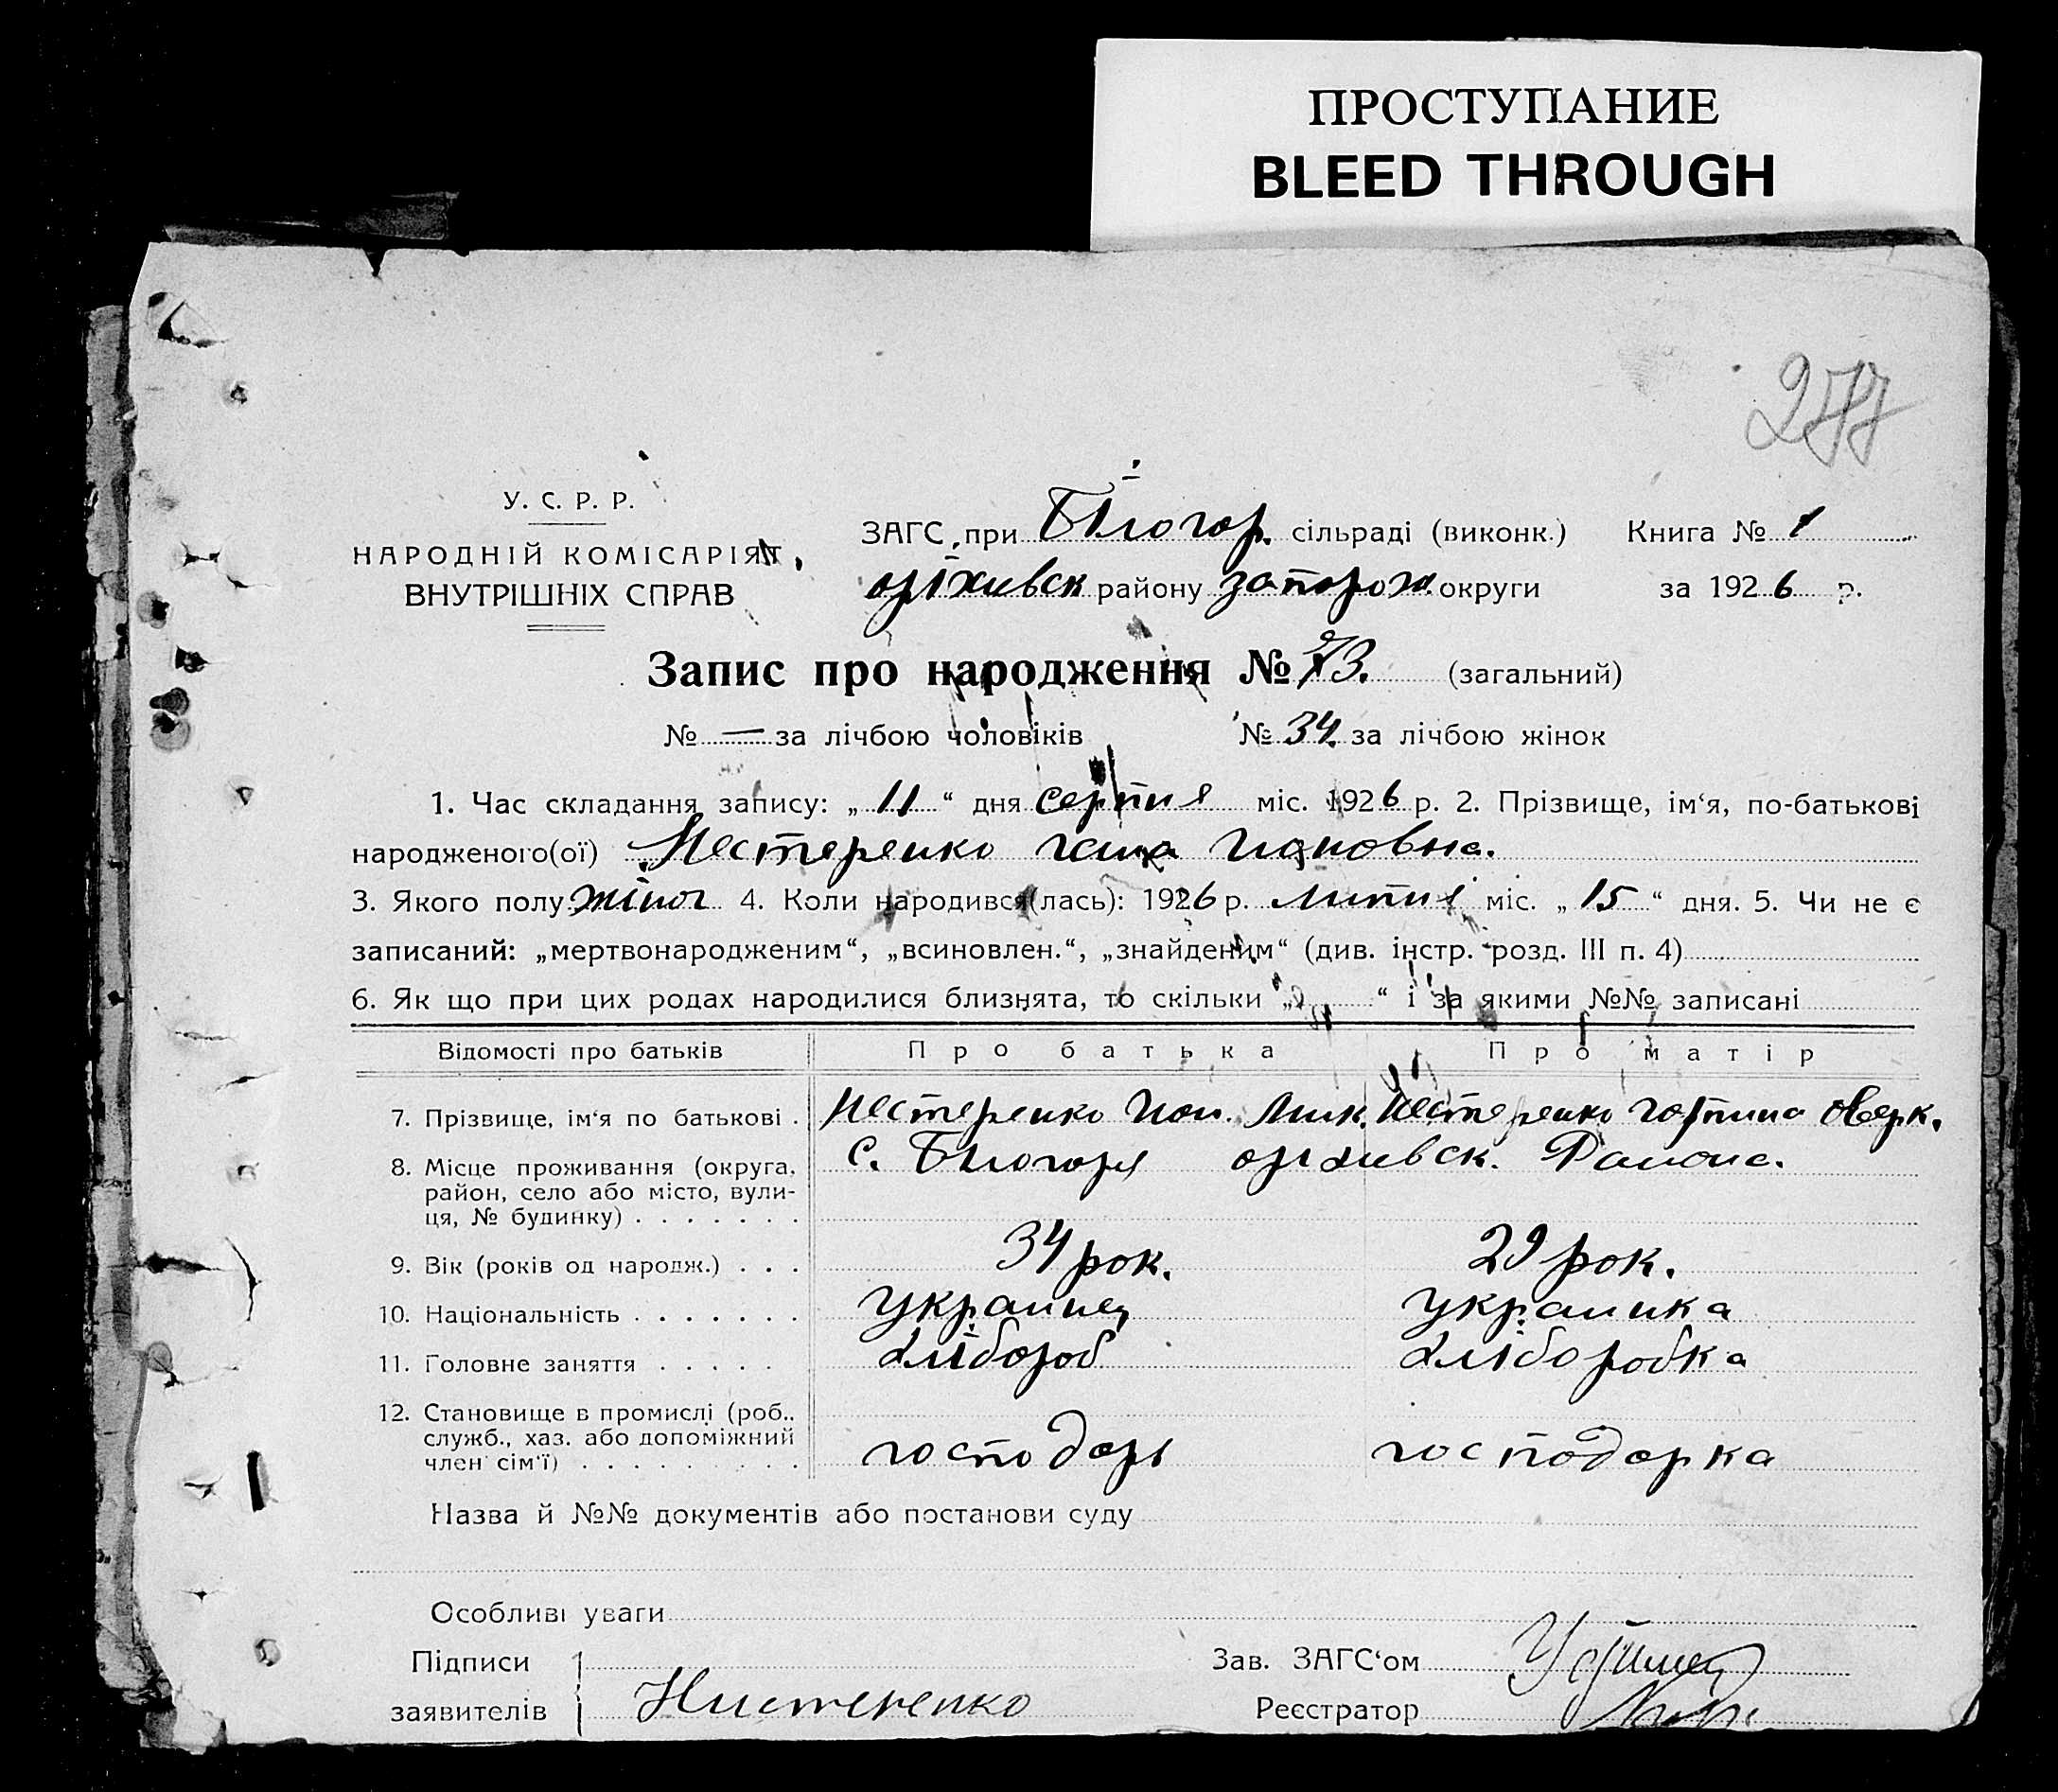 ПРОСТУПАНИЕ
BLEED THROUGH
277
У. С. Р. Р.
НАРОДНІЙ КОМІСАРІЯТ
ВНУТРІШНІХ СПРАВ
ЗАГС при Білогор. сільраді (виконк.) Книга № 1
оріхивськ району запорож. округи за 1926 р.
Запис про народження № 73. (загальний)
№ — за лічбою чоловіків № 34. за лічбою жінок
1. Час складання запису: „11“ дня серпня міс. 1926 р. 2. Прізвище, ім‘я, по-батькові
народженого(ої) Нестеренко
3. Якого полу жіноч 4. Коли народився(лась): 1926 р. липня міс. „15“ дня. 5. Чи не є
записаний: „мертвонародженим“, „всиновлен.“, „знайденим“ (див. інстр. розд. III п. 4)
6. Як що при цих родах народилися близнята, то скільки „ “ і за якими №№ записані
Відомості про батьків Про батька Про матір
7. Прізвище, ім‘я по батькові . Нестеренко Нестеренко Горпина Оверк.
8. Місце проживання (округа, с. Білогоря оріхивськ. Района.
район, село або місто, вули-
ця, № будинку) . . . . . . .
9. Вік (років од народж.) . . . 34 рок. 29 рок.
10. Національність . . . . . . . украинец украинка
11. Головне заняття . . . . . хлібороб хліборобка
12. Становище в промислі (роб.,
служб., хаз. або допоміжний
член сім‘ї) . . . . . . . . . господарь господарка
Назва й №№ документів або постанови суду
Особливі уваги
Підписи
заявителів Нистеренко
Зав. ЗАГС‘ом
Реєстратор